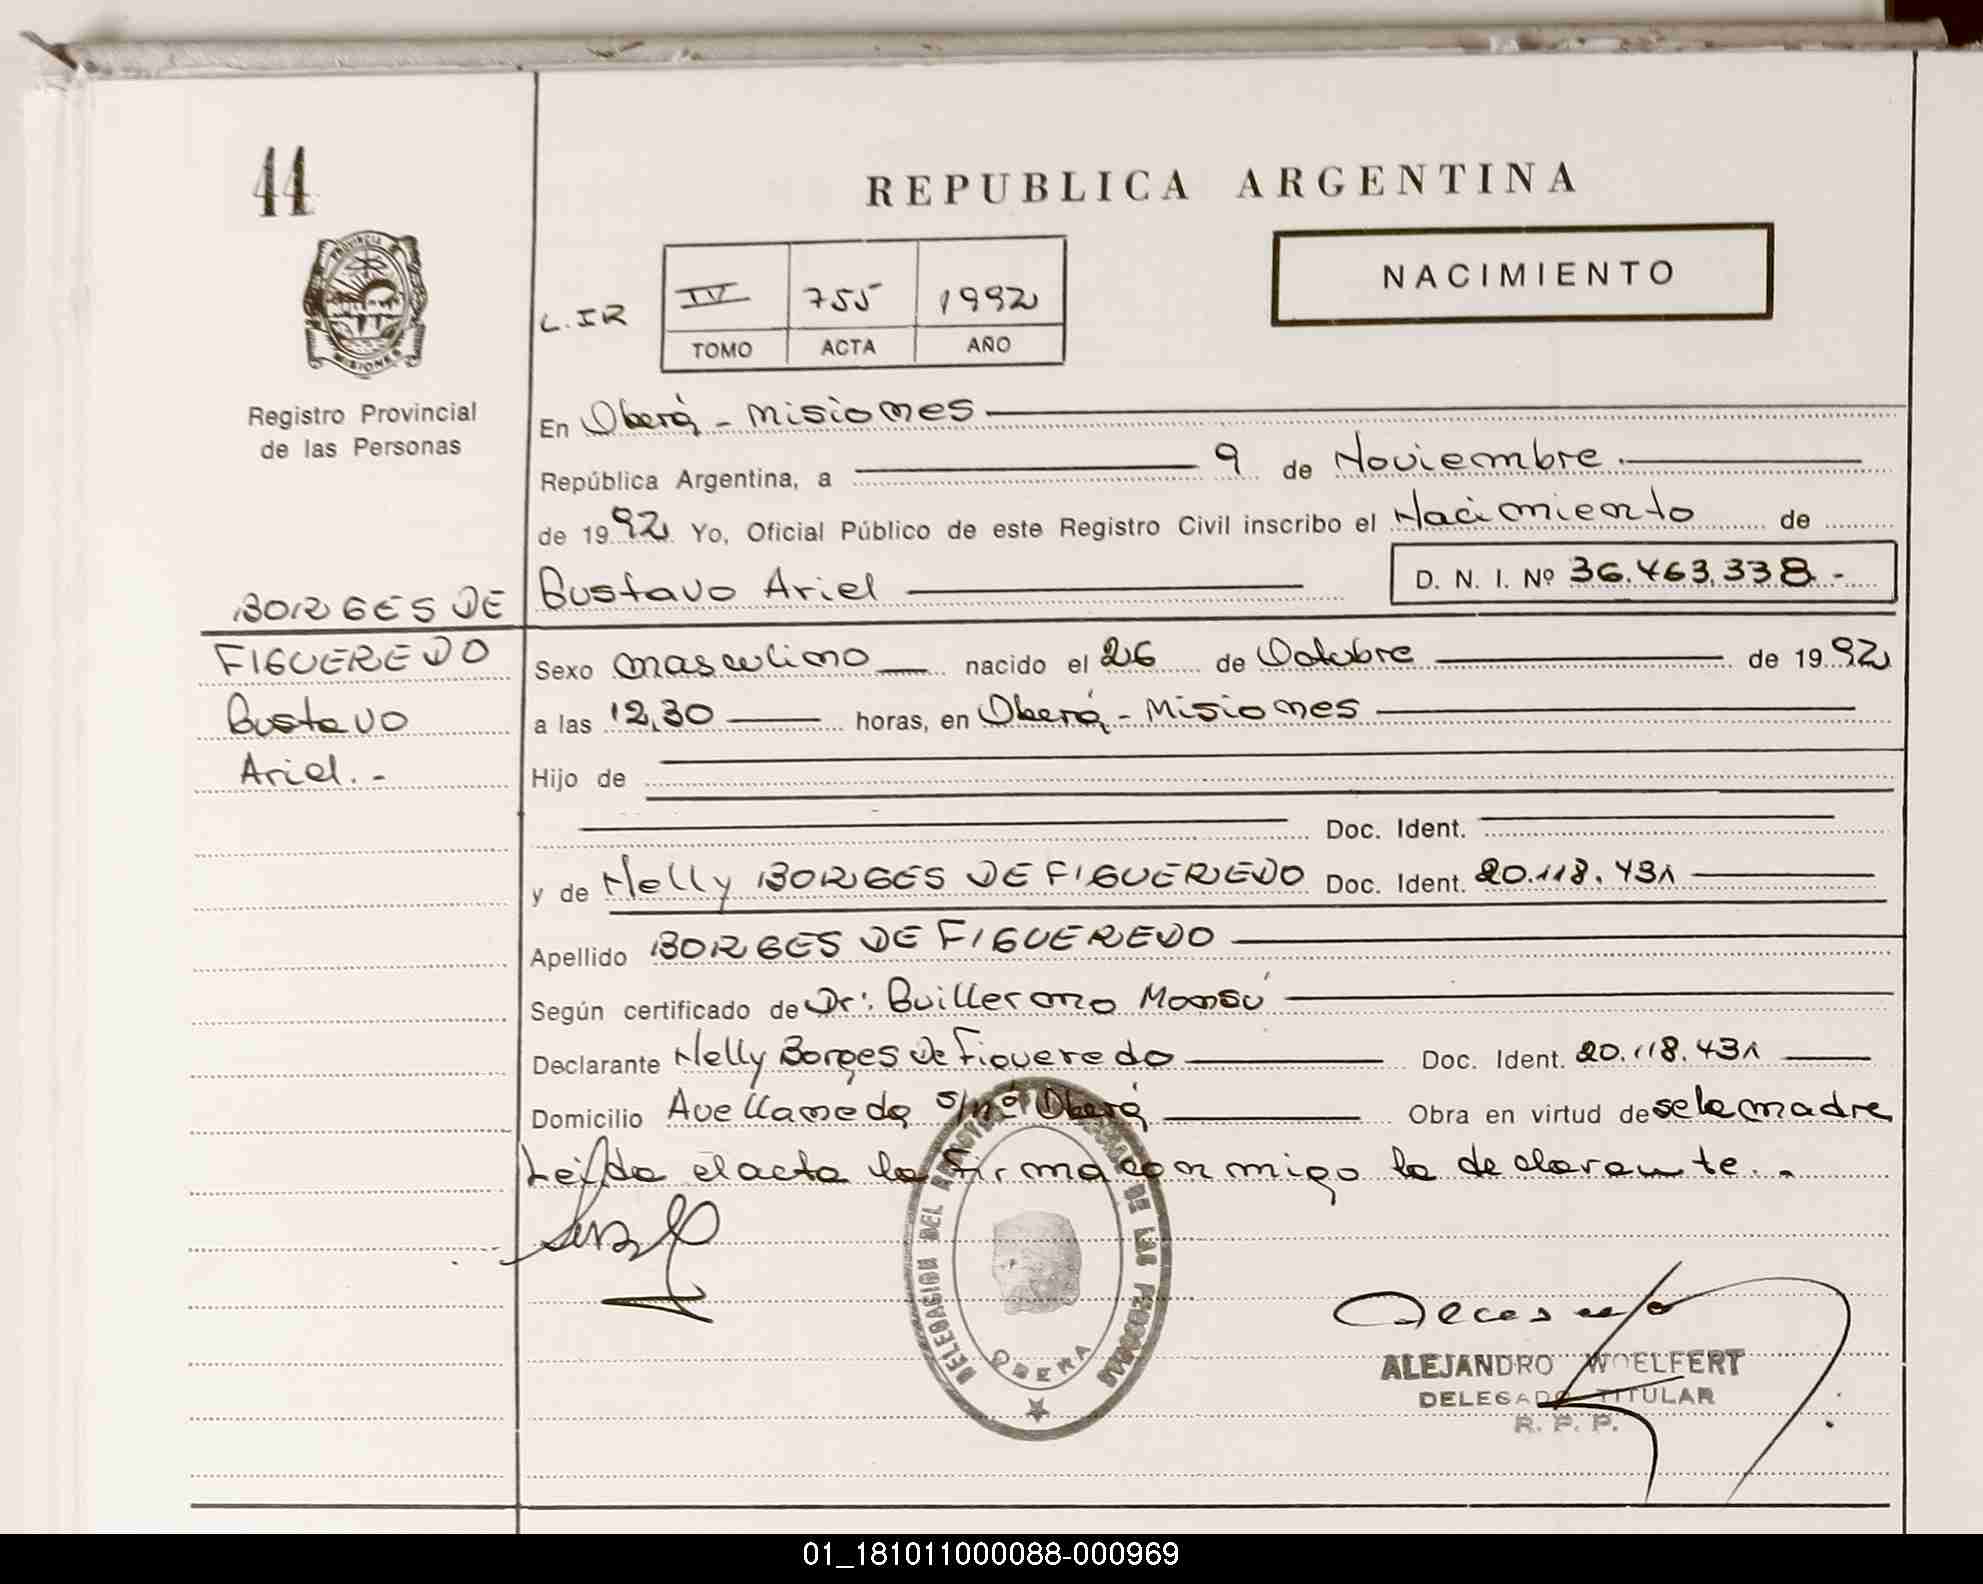 44
REPUBLICA ARGENTINA
NACIMIENTO
L.IR
IV 755 1992
TOMO ACTA AÑO
PROVINCIA
MISIONES
Registro Provincial
de las Personas
En Oberá - Misiones
República Argentina, a 9 de Noviembre
de 1992 Yo, Oficial Público de este Registro Civil inscribo el Nacimiento de
Gustavo Ariel D. N. I. Nº 36.463.338.-
BORGES DE
FIGUEREDO
Gustavo
Ariel.-
Sexo masculino nacido el 26 de Octubre de 1992
a las 12,30 horas, en Oberá - Misiones
Hijo de
Doc. Ident.
y de Nelly BORGES DE FIGUEREDO Doc. Ident. 20.118.431
Apellido BORGES DE FIGUEREDO
Según certificado de Dr: Guillermo Monsú
Declarante Nelly Borges de Figueredo Doc. Ident. 20.118.431
Domicilio Avellaneda s/nº Oberá Obra en virtud de se la madre
Leída el acta la firma conmigo la declarante.-
DELEGACION DEL REGISTRO DE LAS PERSONAS
OBERA
ALEJANDRO WOELFERT
DELEGADO TITULAR
R. P. P.
01_181011000088-000969